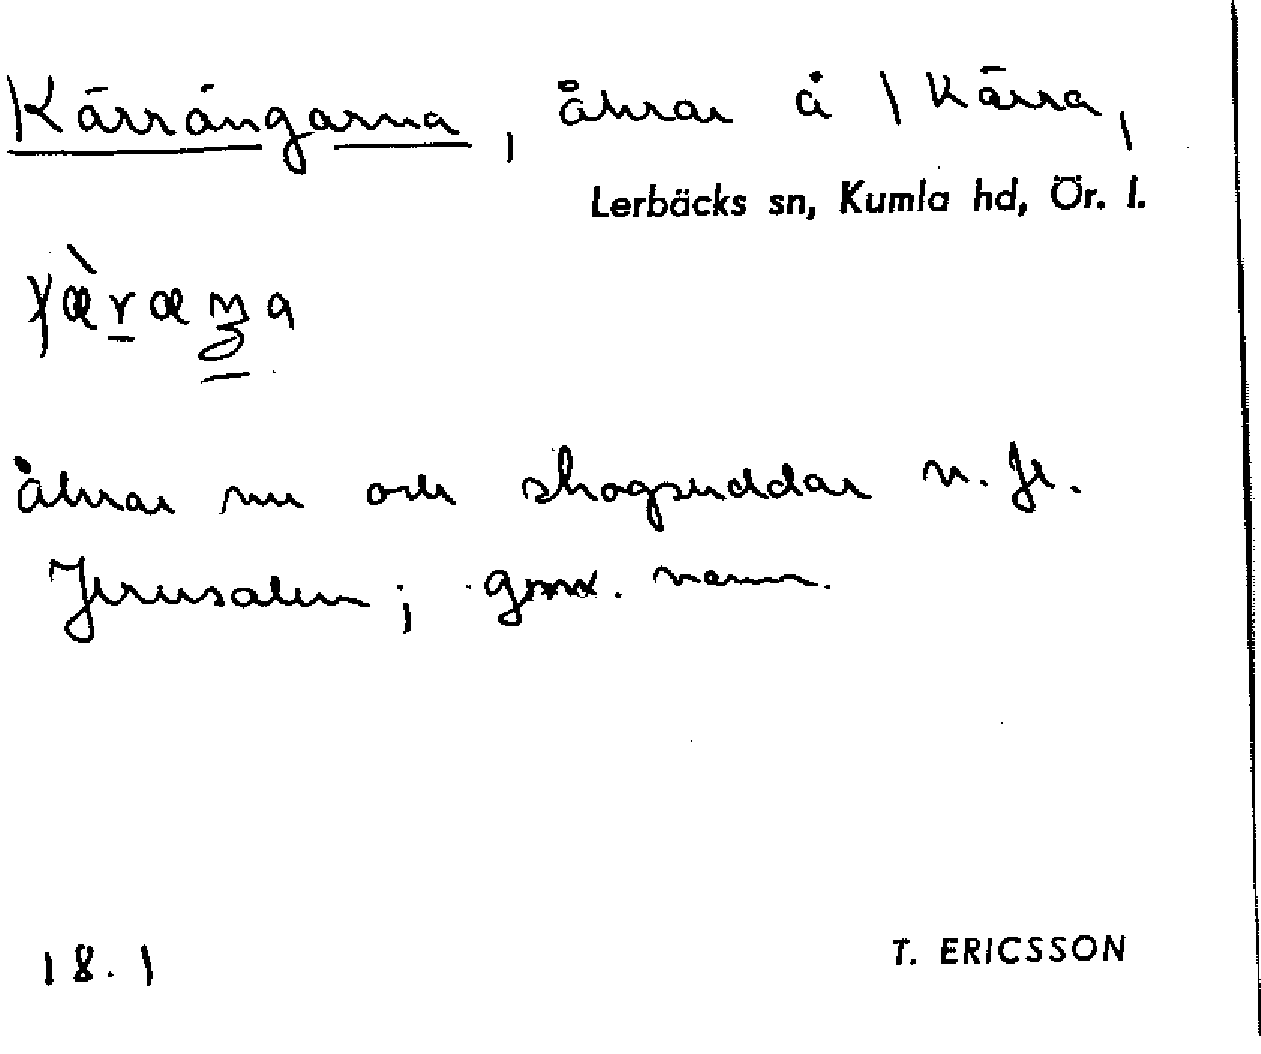 Kärrängarna, åkrar å \ Kärra,
Lerbäcks sn, Kumla hd, Ör. l.
åkrar nu och skogsuddar n. fr.
Jerusalem; gmx. namn.
18.1
T. ERICSSON